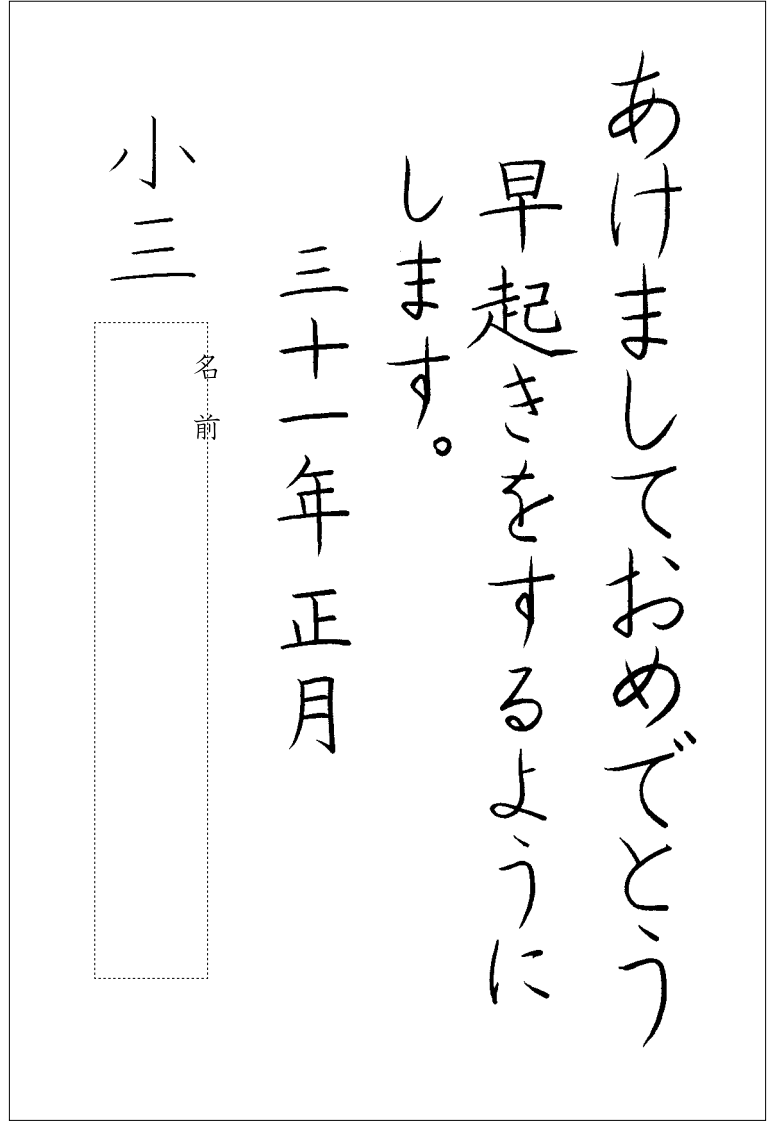 あけましておめでとう
早起きをするように
します。
三十一年 正月
小三
名前